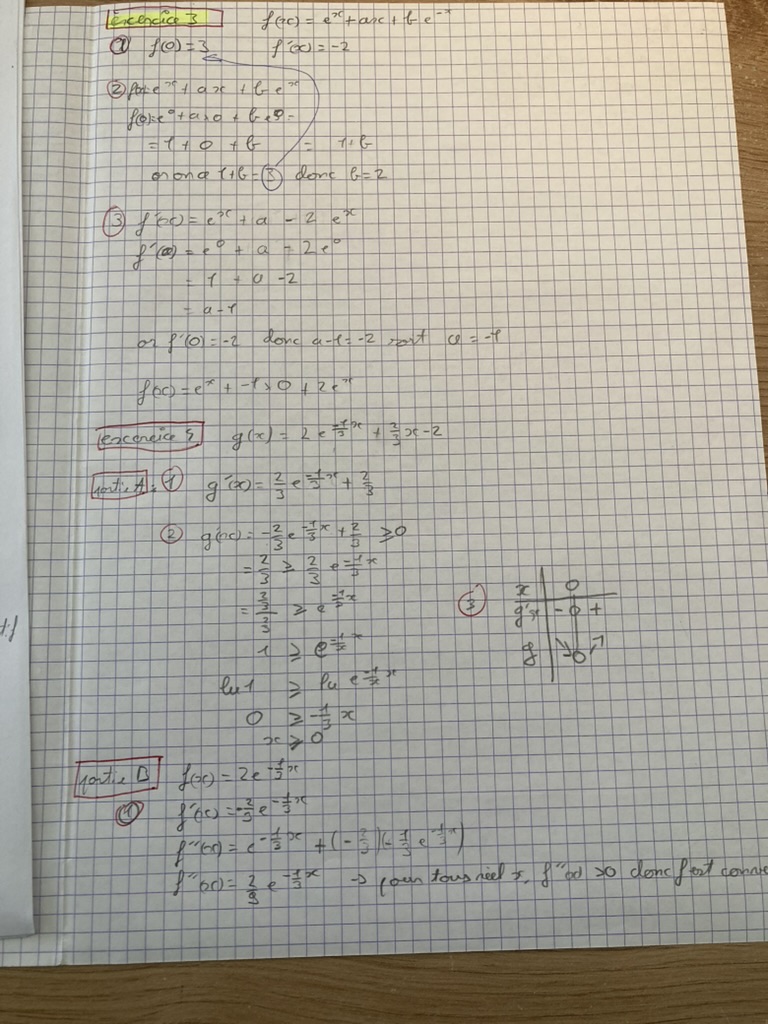 exercice 3 f(x) = e^x + ax + b e^-x
① f(0) = 3 f'(x) = -2
② f(x) = e^x + ax + b e^x
f(0) = e^0 + a×0 + b e^0 =
= 1 + 0 + b = 1+b
or on a 1+b = 3 donc b = 2
③ f'(x) = e^x + a - 2 e^x
f'(0) = e^0 + a - 2e^0
= 1 + a - 2
= a - 1
or f'(0) = -2 donc a-1 = -2 soit a = -1
f(x) = e^x + -1×0 + 2e^x
exercice g(x) = 2 e^(-1/3 x) + 2/3 x - 2
partie A: ① g'(x) = 2/3 e^(-1/3 x) + 2/3
② g(x) = -2/3 e^(-1/3 x) + 2/3 ≥ 0
= 2/3 ≥ 2/3 e^(-1/3 x)
= (2/3)/(2/3) ≥ e^(-1/3 x)
1 ≥ e^(-1/3 x)
ln 1 ≥ ln e^(-1/3 x)
0 ≥ -1/3 x
x ≥ 0
③ x 0
g'x - 0 +
g ↘ 0 ↗
partie B f(x) = 2e^(-1/3 x)
① f'(x) = -2/3 e^(-1/3 x)
f''(x) = e^(-1/3 x) + (-2/3)(-1/3 e^(-1/3 x))
f''(x) = 2/9 e^(-1/3 x) → pour tous réel x, f''(x) > 0 donc f est conve